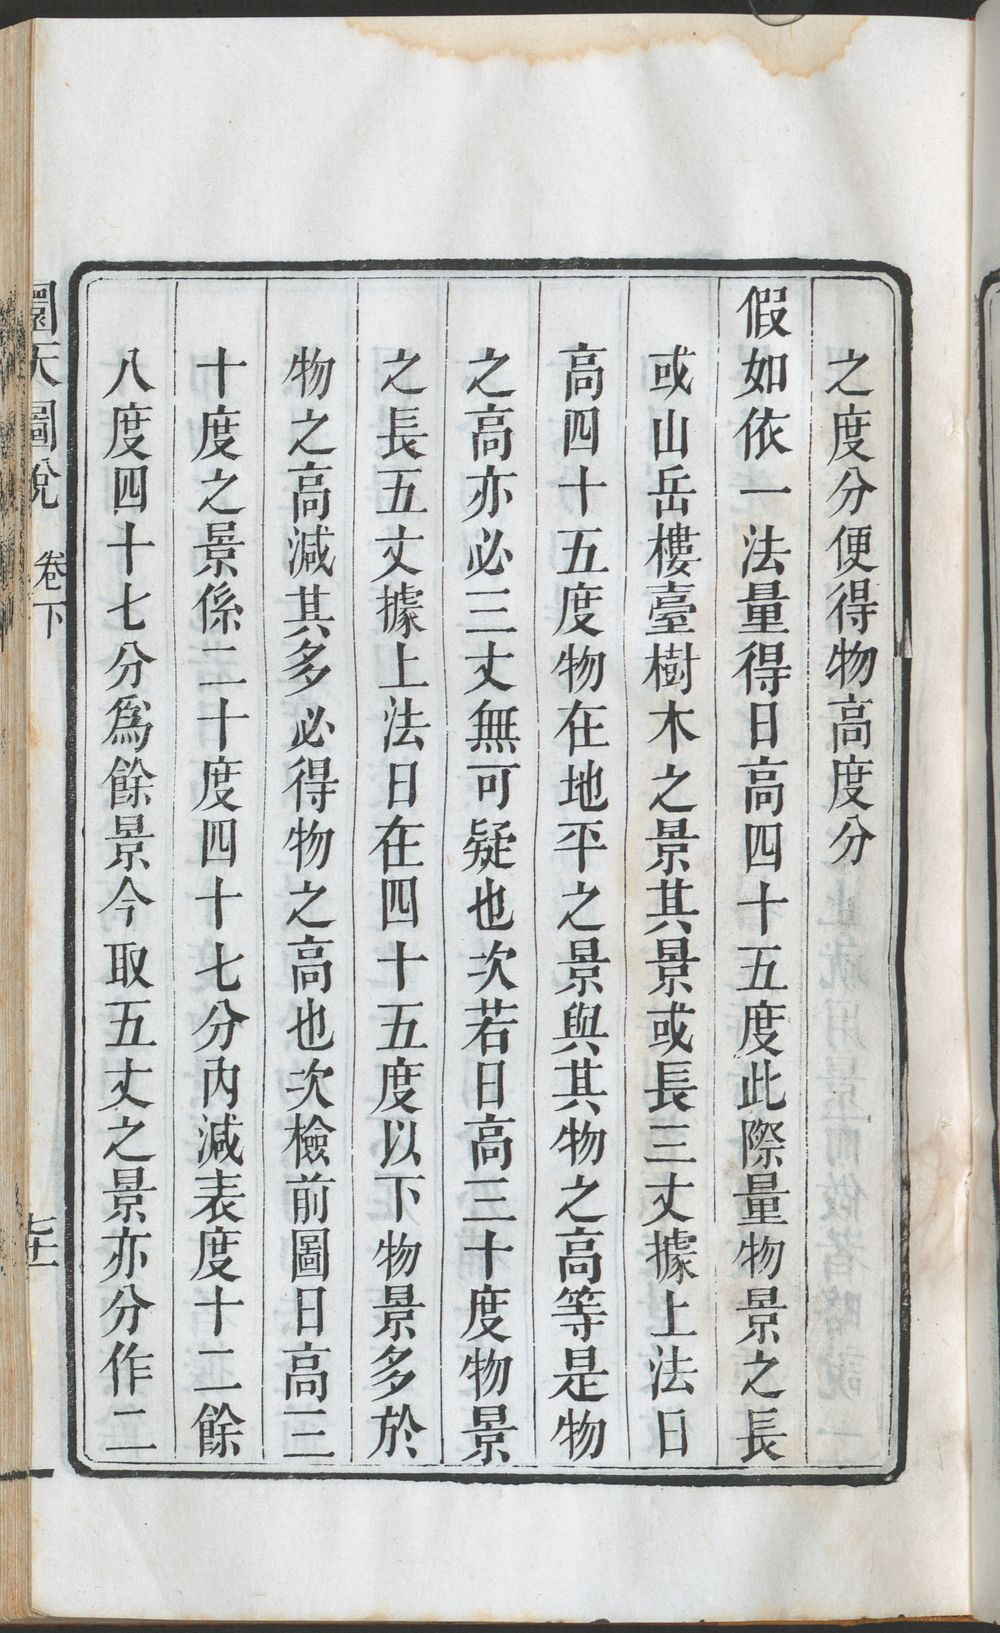 之度分便得物高度分
假如依一法量得日高四十五度此際量物景之長
或山岳樓臺樹木之景其景或長三丈據上法日
高四十五度物在地平之景與其物之高等是物
之高亦必三丈無可疑也次若日高三十度物景
之長五丈據上法日在四十五度以下物景多於
物之高減其多必得物之高也次檢前圖日高三
十度之景係二十度四十七分內減表度十二餘
八度四十七分爲餘景今取五丈之景亦分作二
圜天圖說 卷下